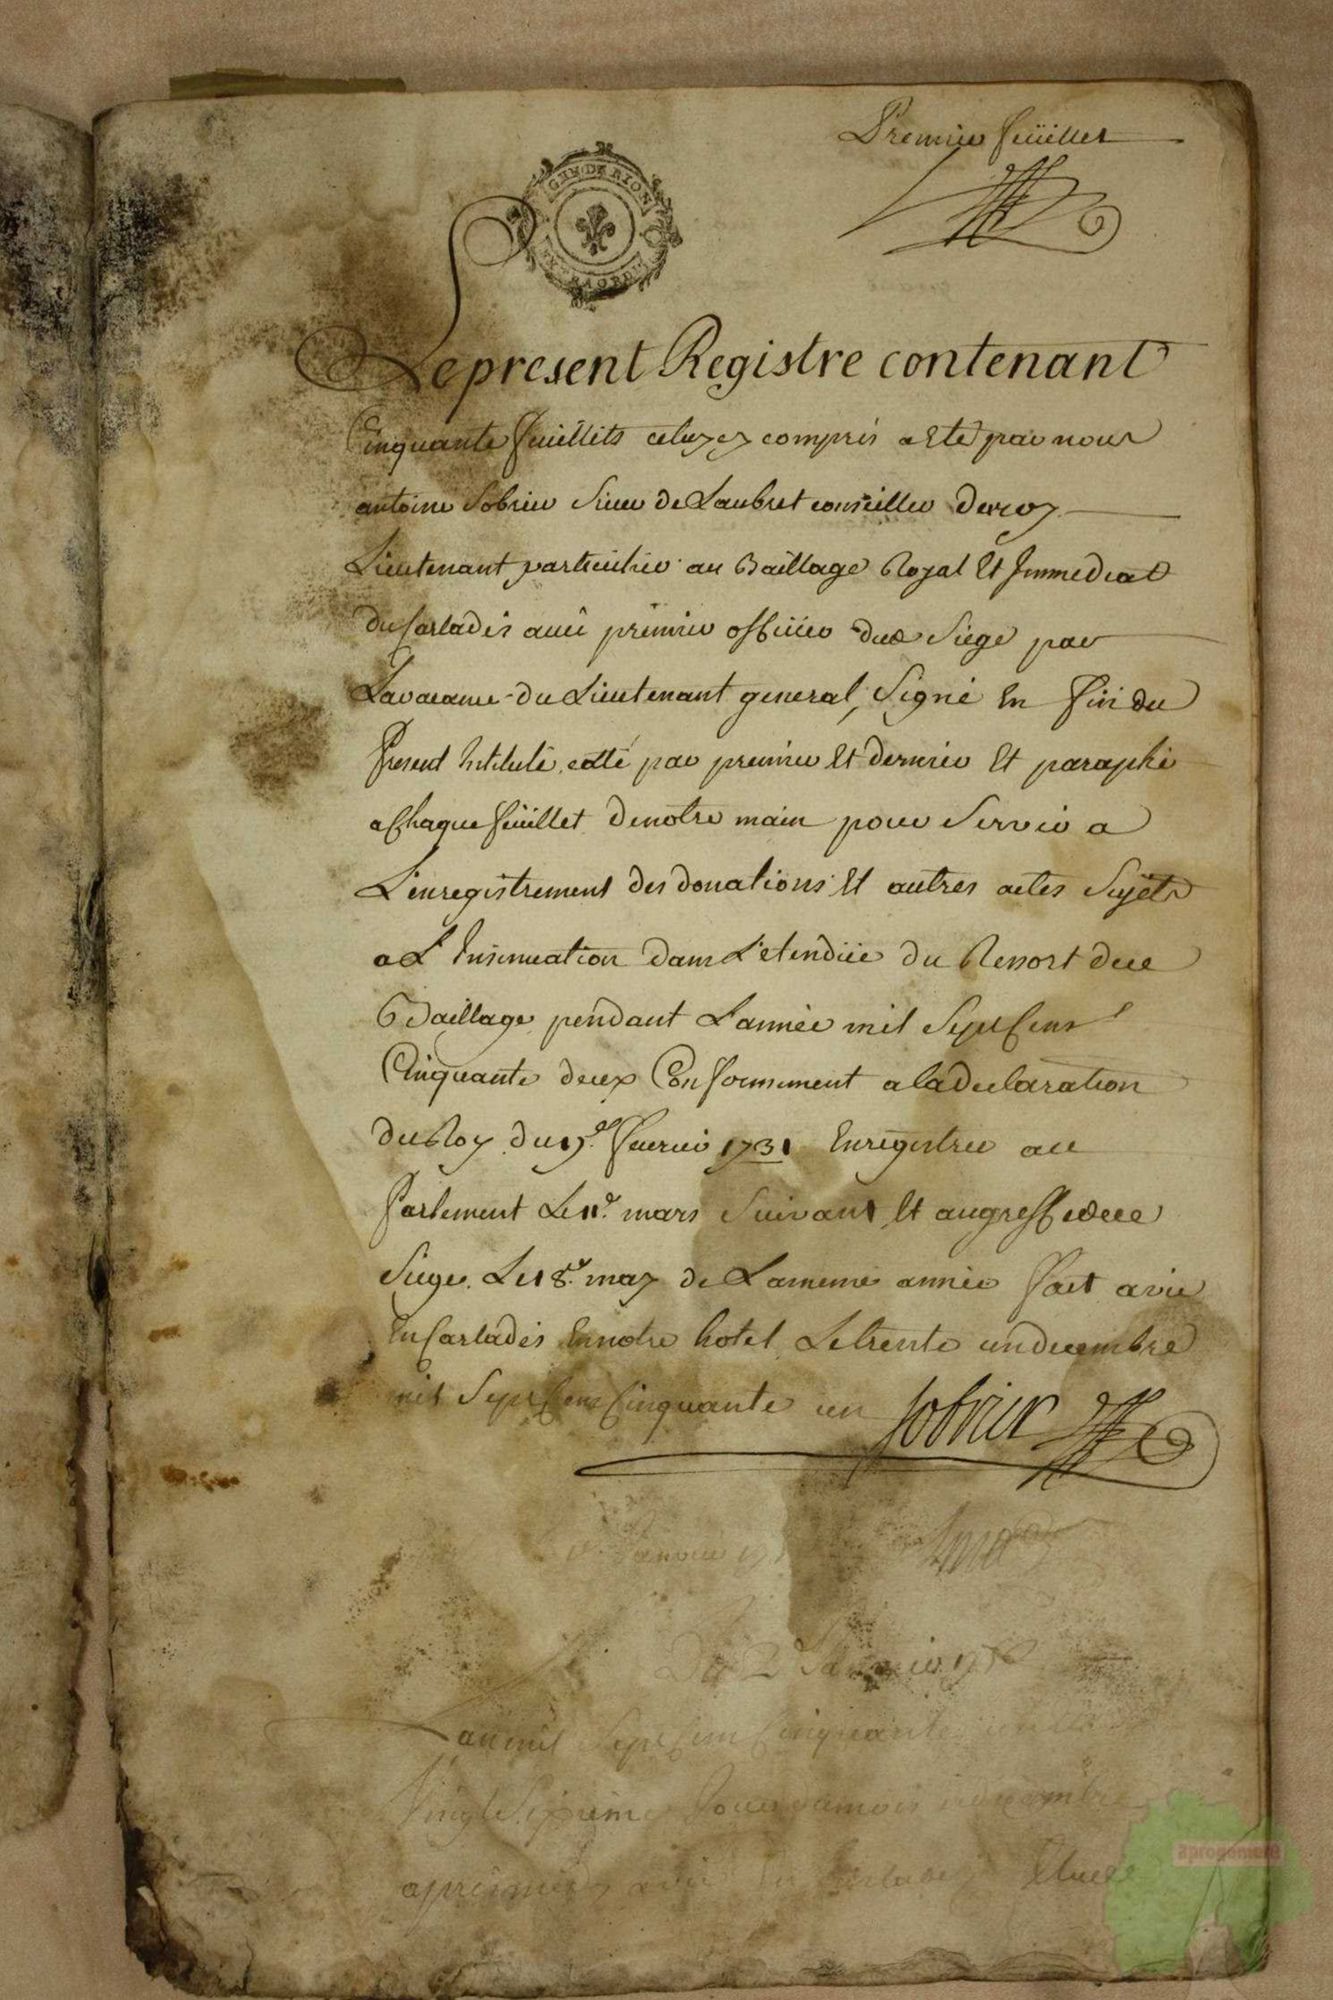 Premier feüillet
GEN. DE RIOM
EXTRAORD
Le present Registre contenant
Cinquante feuillets celuy cy compris a Eté par nous
antoine Sobrier Sieur de Laubret conseiller du roy
Lieutenant particulier au Baillage Royal Et Immediat
du Carladés aüü premier officier dud Siege par
La vacance du Lieutenant general, Signé En fin du
Present Intitulé, cotté par premier Et dernier Et paraphé
a Chaque feüillet de notre main pour Servir a
L'enregistrement des donations Et autres actes Sujets
a L'Insinuation dans L'etendüe du Ressort du
Baillage pendant L'année mil Sept Cens
Cinquante deux Conformement a la declaration
du Roy du 17e fevrier 1731 Enregistrée au
Parlement Le 11e mars Suivant Et au greffe de ce
Siege Le 18e may de La meme année fait a vic
En Carladés En notre hotel Le trente un decembre
mil Sept Cens Cinquante un Sobrier
Janvier
Du 2 Janvier
L'an mil Sept Cens Cinquante
Vingt Septieme Jour du mois de decembre
apres midy a vic En Carladez
aprogemere